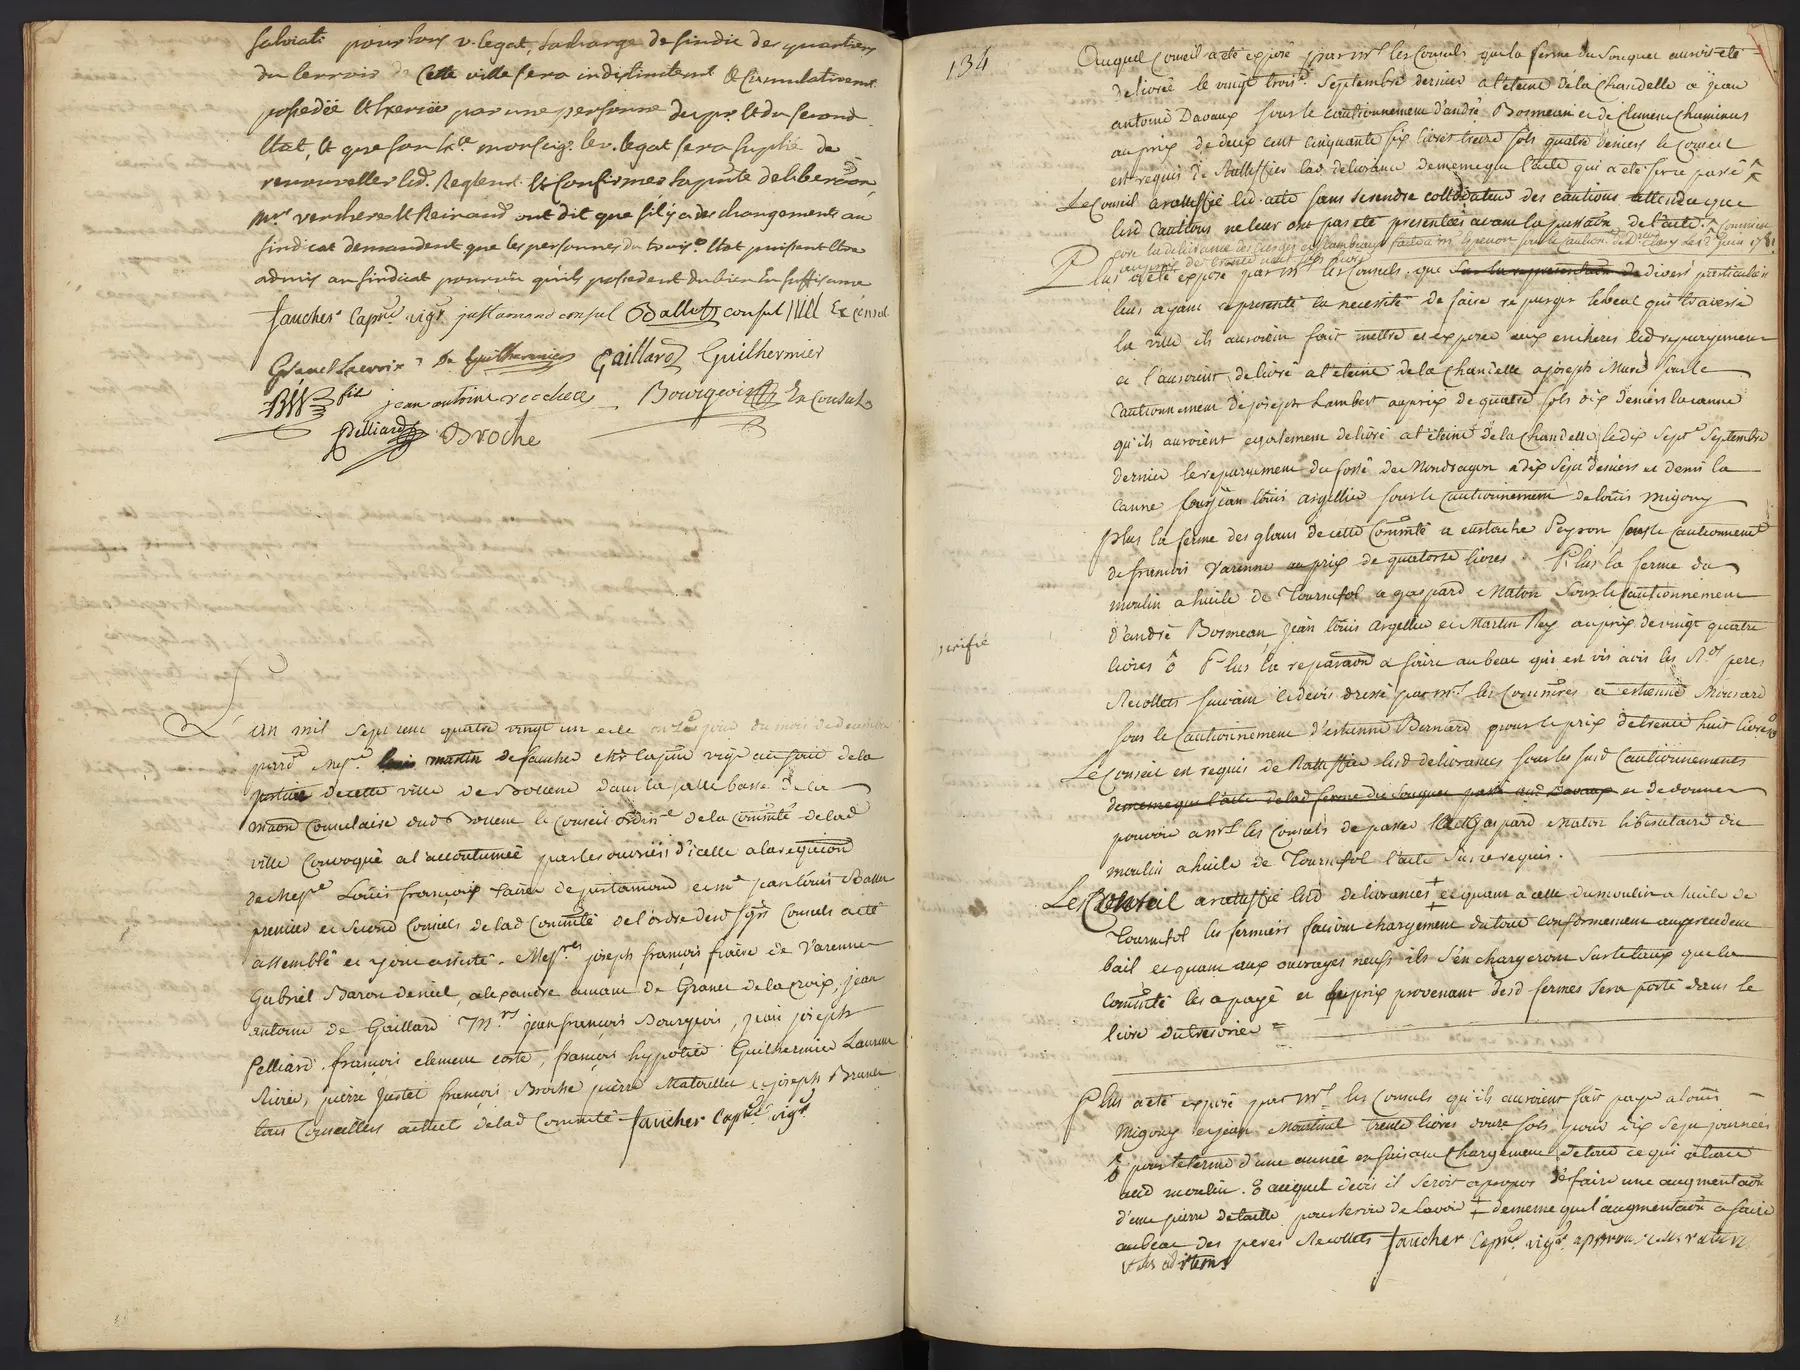 salviati pour lors v. legat, la charge de sindic des quartiers
du terroir de cette ville sera indistinctemt & cumulativemt
possedée & exercée par une personne du pr. & du second
état, & que son exce monseigr le v. legat sera suplié de
renouveller led. Reglemt & confirmer la pnte deliberaon,
mrs verchere & Reinaud ont dit que s'il y a des changements au
sindicat demandent que les personnes du trois.e état puissent être
admis au sindicat pourvu qu'ils possedent du bien en suffisame
faucher Capne vigr justamond consul Ballet consul Ex consul
Granet Lacroix De Guilhermier Gaillard Guilhermier
fils jean antoine rocher Bourgeois Ex Consul
Pelliard Broche
L'an mil sept cent quatre vingt un et le onze jour du mois de decembre
pardt Messre louis martin de faucher capne viger au fait de la
justice de cette ville de Bollene dans la salle basse de la
maon Consulaire dud Bollene le Conseil ordinre de la Comuté de lad
ville Convoqué a l'accoutumée par les ouvriers d'icelle a la requicion
de Messre Louis françois Xavier de justamond et mr jean Louis Ballet
premier et second Consuls de lad Comuté de l'ordre desd sgrs Consuls a eté
assemblé et y ont assisté. Messres joseph françois Xavier de Varenne
Gabriel Baron deniel, alexandre amant de Granet de la croix, jean
antoine de Gaillard Mrs jean françois Bourgeois, jean joseph
Pelliard, françois clement coste, françois hypolite Guilhermier Laurent
Riviere, pierre Justet françois Broche pierre Matteillet joseph Brunet
tous Conseillers actuels de lad Comuté faucher Capne vigr
134
Auquel Conseil a eté exposé par mrs les Consuls que la ferme du Souquet auroit eté
delivrée le vingt troise Septembre dernier a l'éteint de la Chandelle a jean
antoine Davaux sous le cautionnement d'andré Bosmean et de Clement Chaminas
au prix de deux cent cinquante six livres treize sols quatre deniers le Conseil
est requis de Ratiffier lad delivrance de meme que l'acte qui a eté sur ce passé
Le Conseil a ratiffié led. acte sans se rendre collodateur des cautions attendu que
lesd Cautions ne leur ont pas eté presentées avant la passaon de l'acte.
Plus a eté exposé par mrs les Consuls que sur la representation de divers particuliers
leur ayant representé la necessité de faire repurger le beal qui traverse
la ville ils auroient fait mettre et exposer aux encheres led repurgement
et l'auroient delivré a l'éteint de la Chandelle a joseph Mure sous le
Cautionnement de joseph Lambert au prix de quatre sols dix deniers la canne
qu'ils auroient egalement delivré a l'éteint de la Chandelle le dix septe Septembre
dernier le repurgement du fossé de Mondragon a dix sept deniers et demi la
canne a jean louis argellier sous le cautionnement de louis migouy
Plus la ferme des glans de cette Comuté a eustache Peyron sous le Cautionnement
de françois Varenne au prix de quatorze livres. Plus la ferme du
moulin a huile de Tournefol a gaspard Maton sous le Cautionnement
d'andré Bosmean, jean louis argellier et Martin Rey au prix de vingt quatre
verifié
livres Plus la reparaon a faire au beal qui est vis avis les Rds peres
Recollets suivant le devis dressé par mrs les Commres a estienne Monsard
sous le Cautionnement d'estienne Bernard pour le prix de trente huit livres
Le Conseil est requis de Ratiffier lesd delivrances sous les susd Cautionnements
de meme que l'acte de lad ferme du Souquet passé aud Davaux et de donner
pouvoir a mrs les Consuls de passer a Gaspard Maton liberataire du
moulin a huile de Tournefol l'acte sur ce requis.
Le Conseil a ratiffié lesd delivrances et quant a celle du moulin a huile de
Tournefol les fermiers fairont chargement du tout conformement au precedent
bail et quant aux ouvrages neufs ils s'en chargeront sur le taux que la
Comuté les a payé et le prix provenant desd fermes sera porté dans le
livre du tresorier
Plus a eté exposé par mrs les Consuls qu'ils auroient fait payer a louis
Migouy et jean Moutinel trente livres douze sols pour dix sept journées
pour le terme d'une année en faisant Chargement de tout ce qui est au
aud moulin. auquel devis il seroit apropos d'y faire une augmentaon
d'une pierre de taille pour servir de lavoir de meme que l'augmentaon a faire
au beal des peres Recollets faucher Capne vigr approuvé les ratures
& les additions